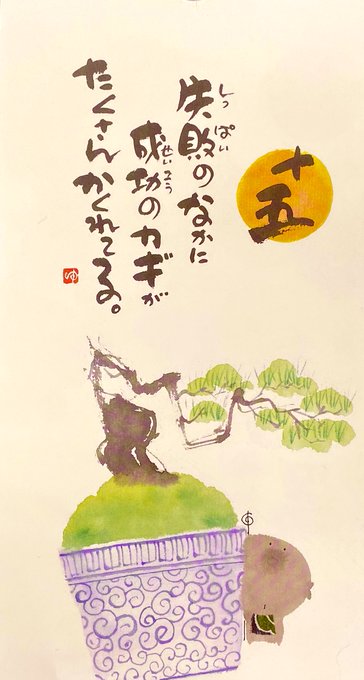 十五
失敗のなかに
しっぱい
成功のカギが
せいこう
たくさんかくれてる。